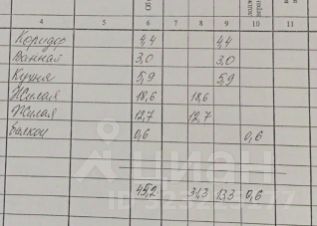 4 5 6 7 8 9 10 11
Коридор 4,4 4,4
Ванная 3,0 3,0
Кухня 5,9 5,9
Жилая 18,6 18,6
Жилая 12,7 12,7
балкон 0,6 0,6
45,2 31,3 13,3 0,6
циан